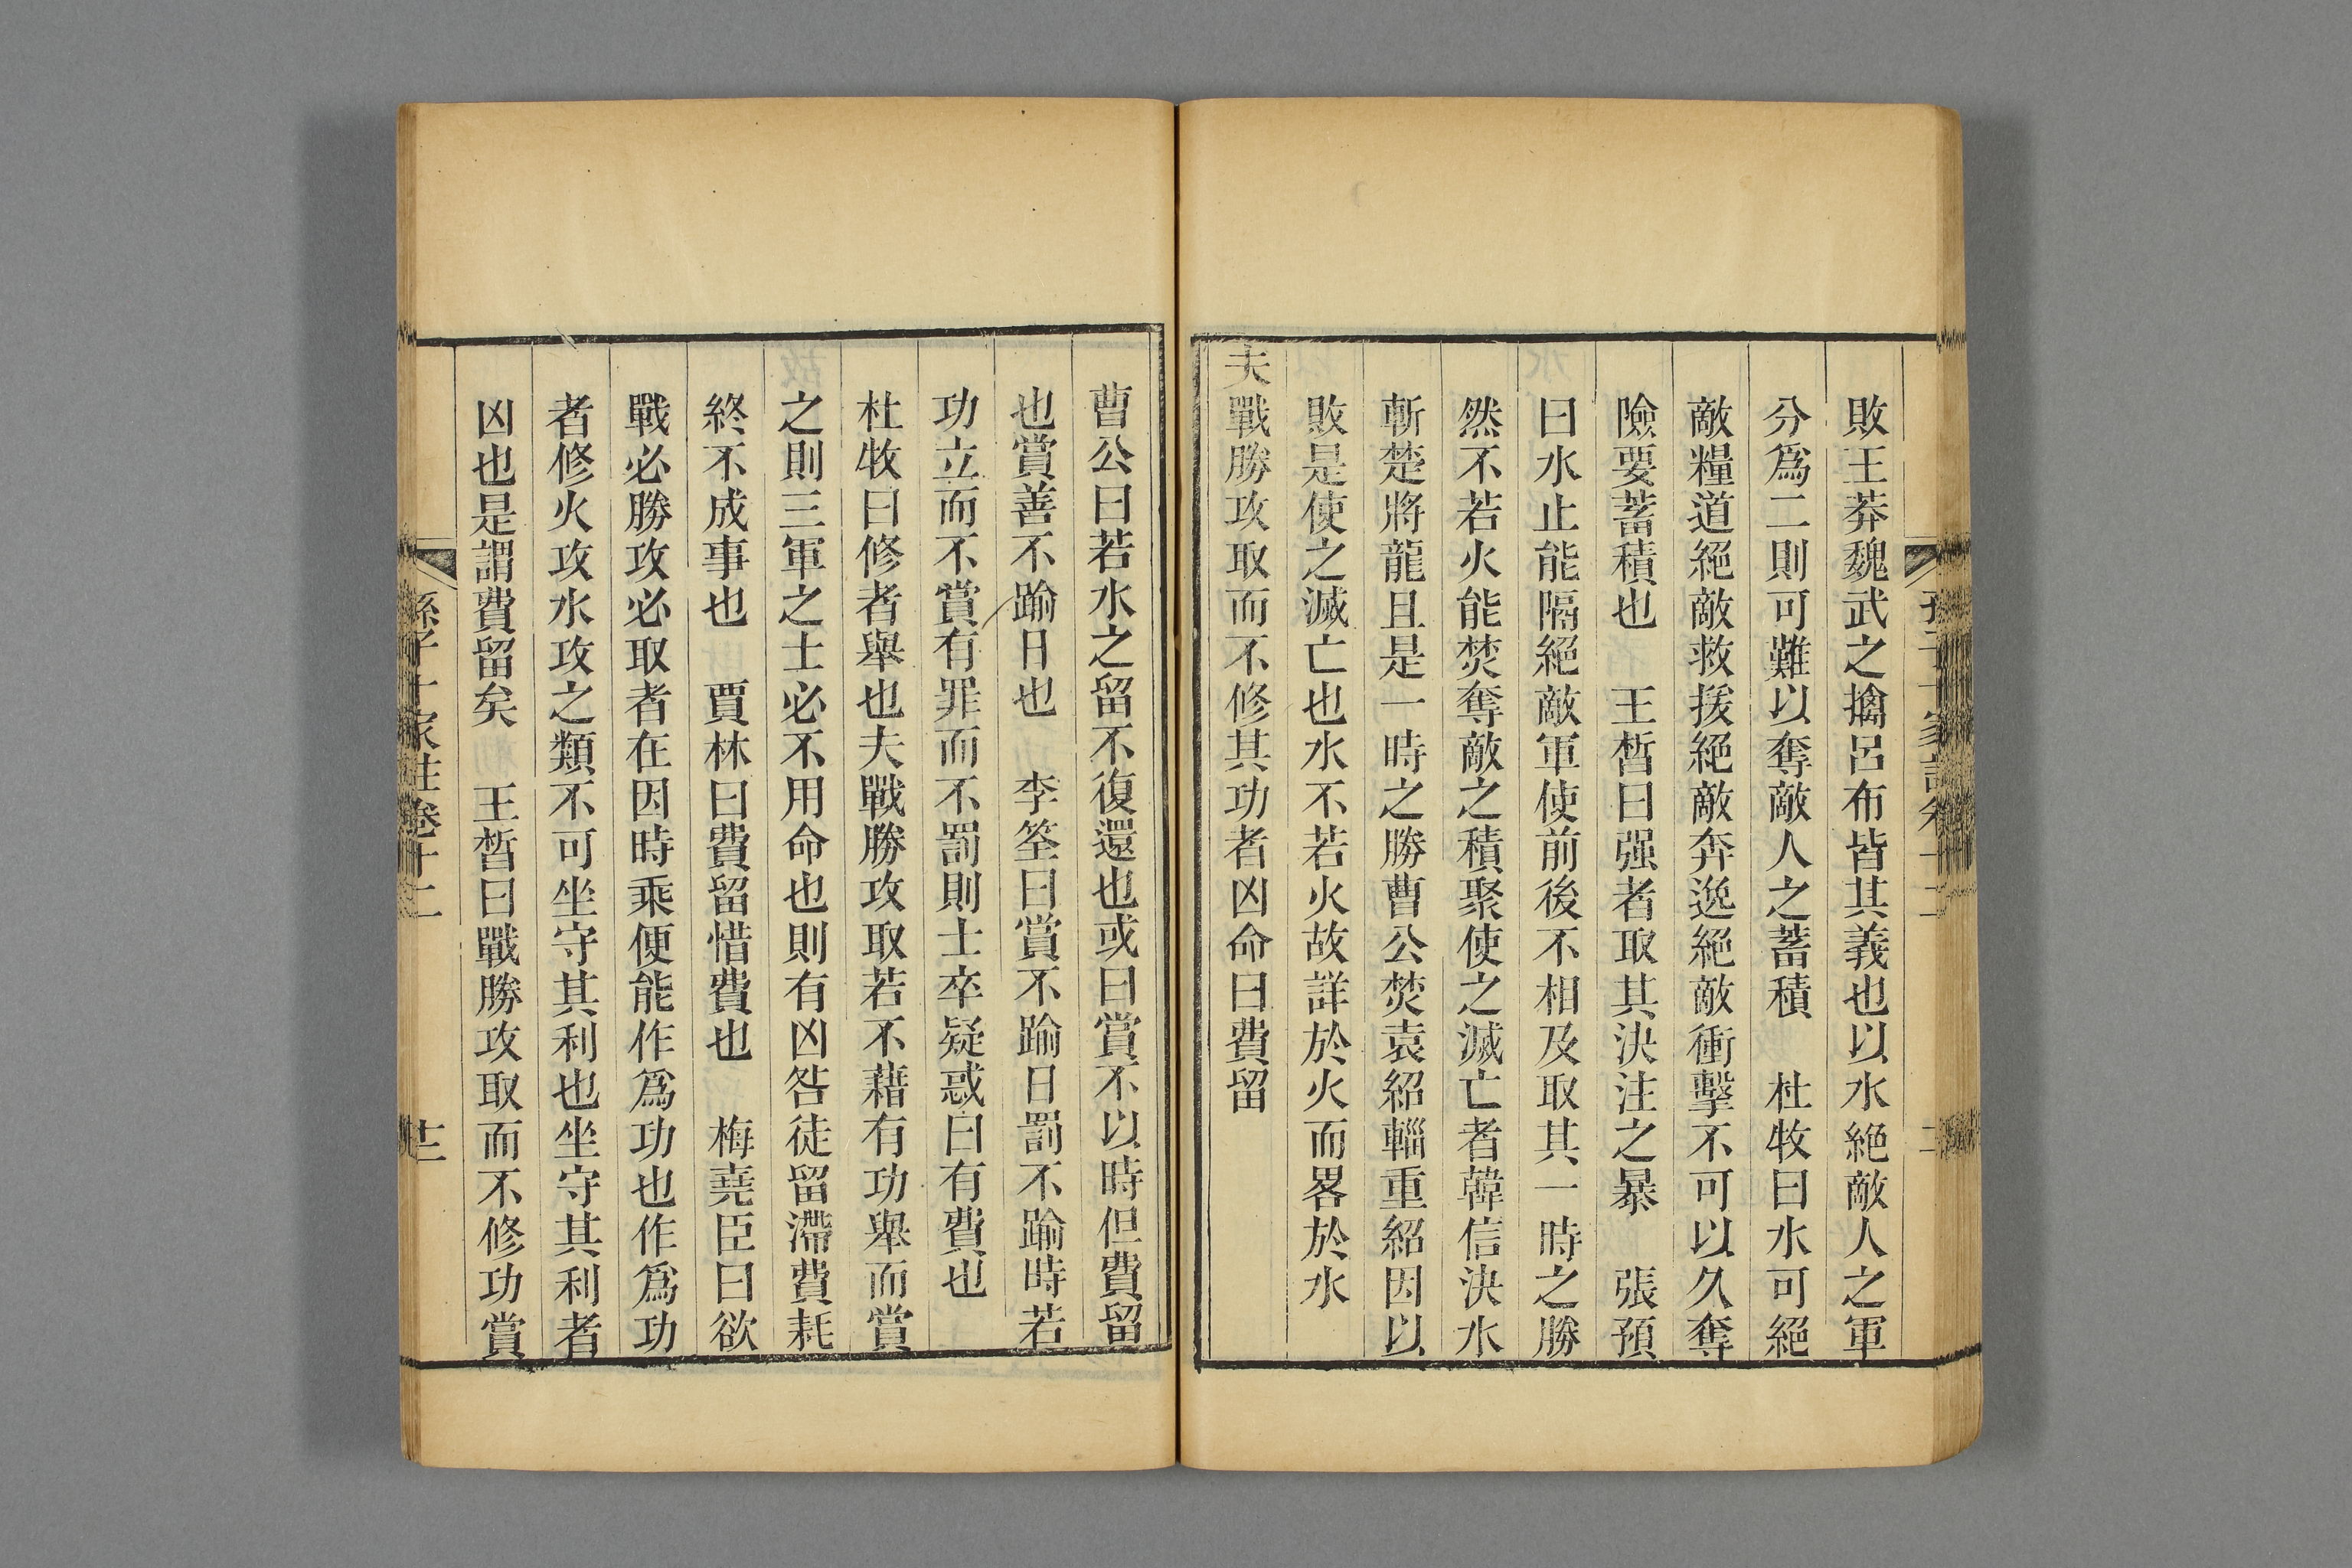 敗王莽魏武之擒呂布皆其義也以水絕敵人之軍
分爲二則可難以奪敵人之蓄積　杜牧曰水可絕
敵糧道絕敵救援絕敵奔逸絕敵衝擊不可以久奪
險要蓄積也　王晳曰强者取其決注之暴　張預
曰水止能隔絕敵軍使前後不相及取其一時之勝
然不若火能焚奪敵之積聚使之滅亡者韓信決水
斬楚將龍且是一時之勝曹公焚袁紹輜重紹因以
敗是使之滅亡也水不若火故詳於火而畧於水
夫戰勝攻取而不修其功者凶命曰費留
曹公曰若水之留不復還也或曰賞不以時但費留
也賞善不踰日也　李筌曰賞不踰日罰不踰時若
功立而不賞有罪而不罰則士卒疑惑曰有費也
杜牧曰修者舉也夫戰勝攻取若不藉有功舉而賞
之則三軍之士必不用命也則有凶咎徒留滯費耗
終不成事也　賈林曰費留惜費也　梅堯臣曰欲
戰必勝攻必取者在因時乘便能作爲功也作爲功
者修火攻水攻之類不可坐守其利也坐守其利者
凶也是謂費留矣　王晳曰戰勝攻取而不修功賞
孫子十家註卷十二